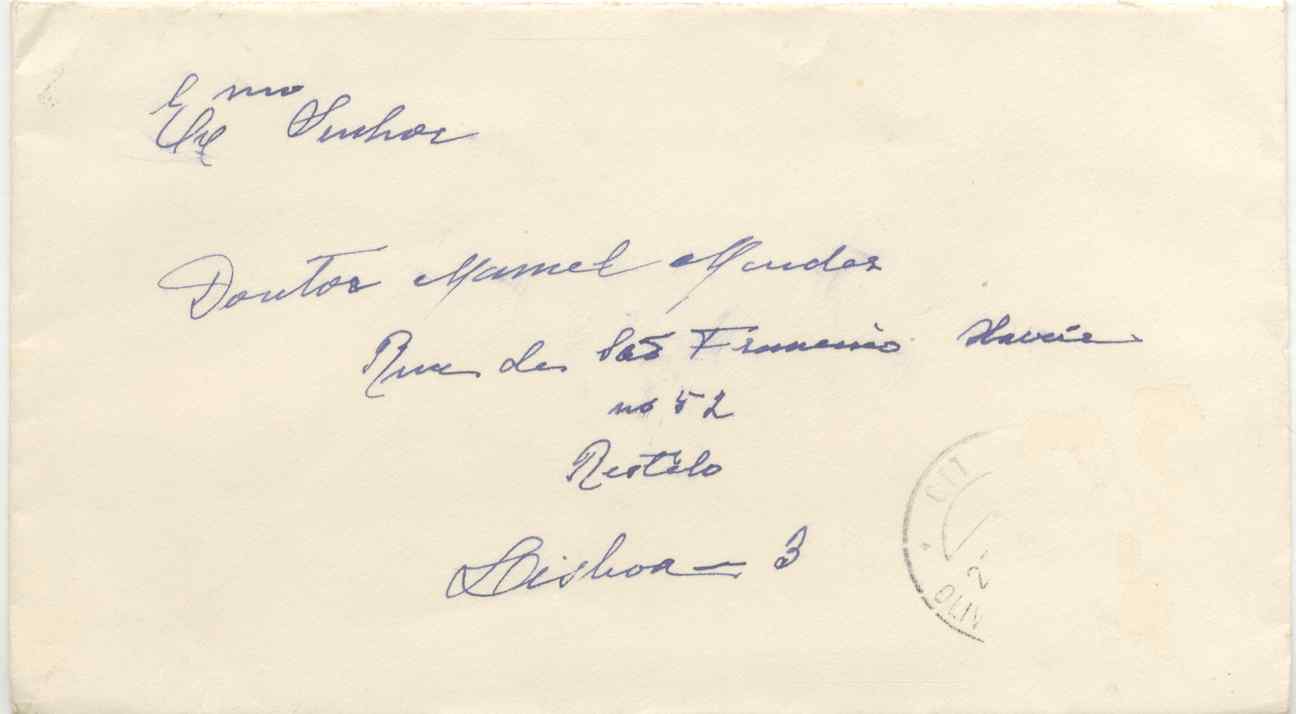 Exmo Senhor
Doutor Manuel Mendes
Rua de São Francisco Xavier
no 52
Restelo
Lisboa - 3
CTT
2-
OLIV